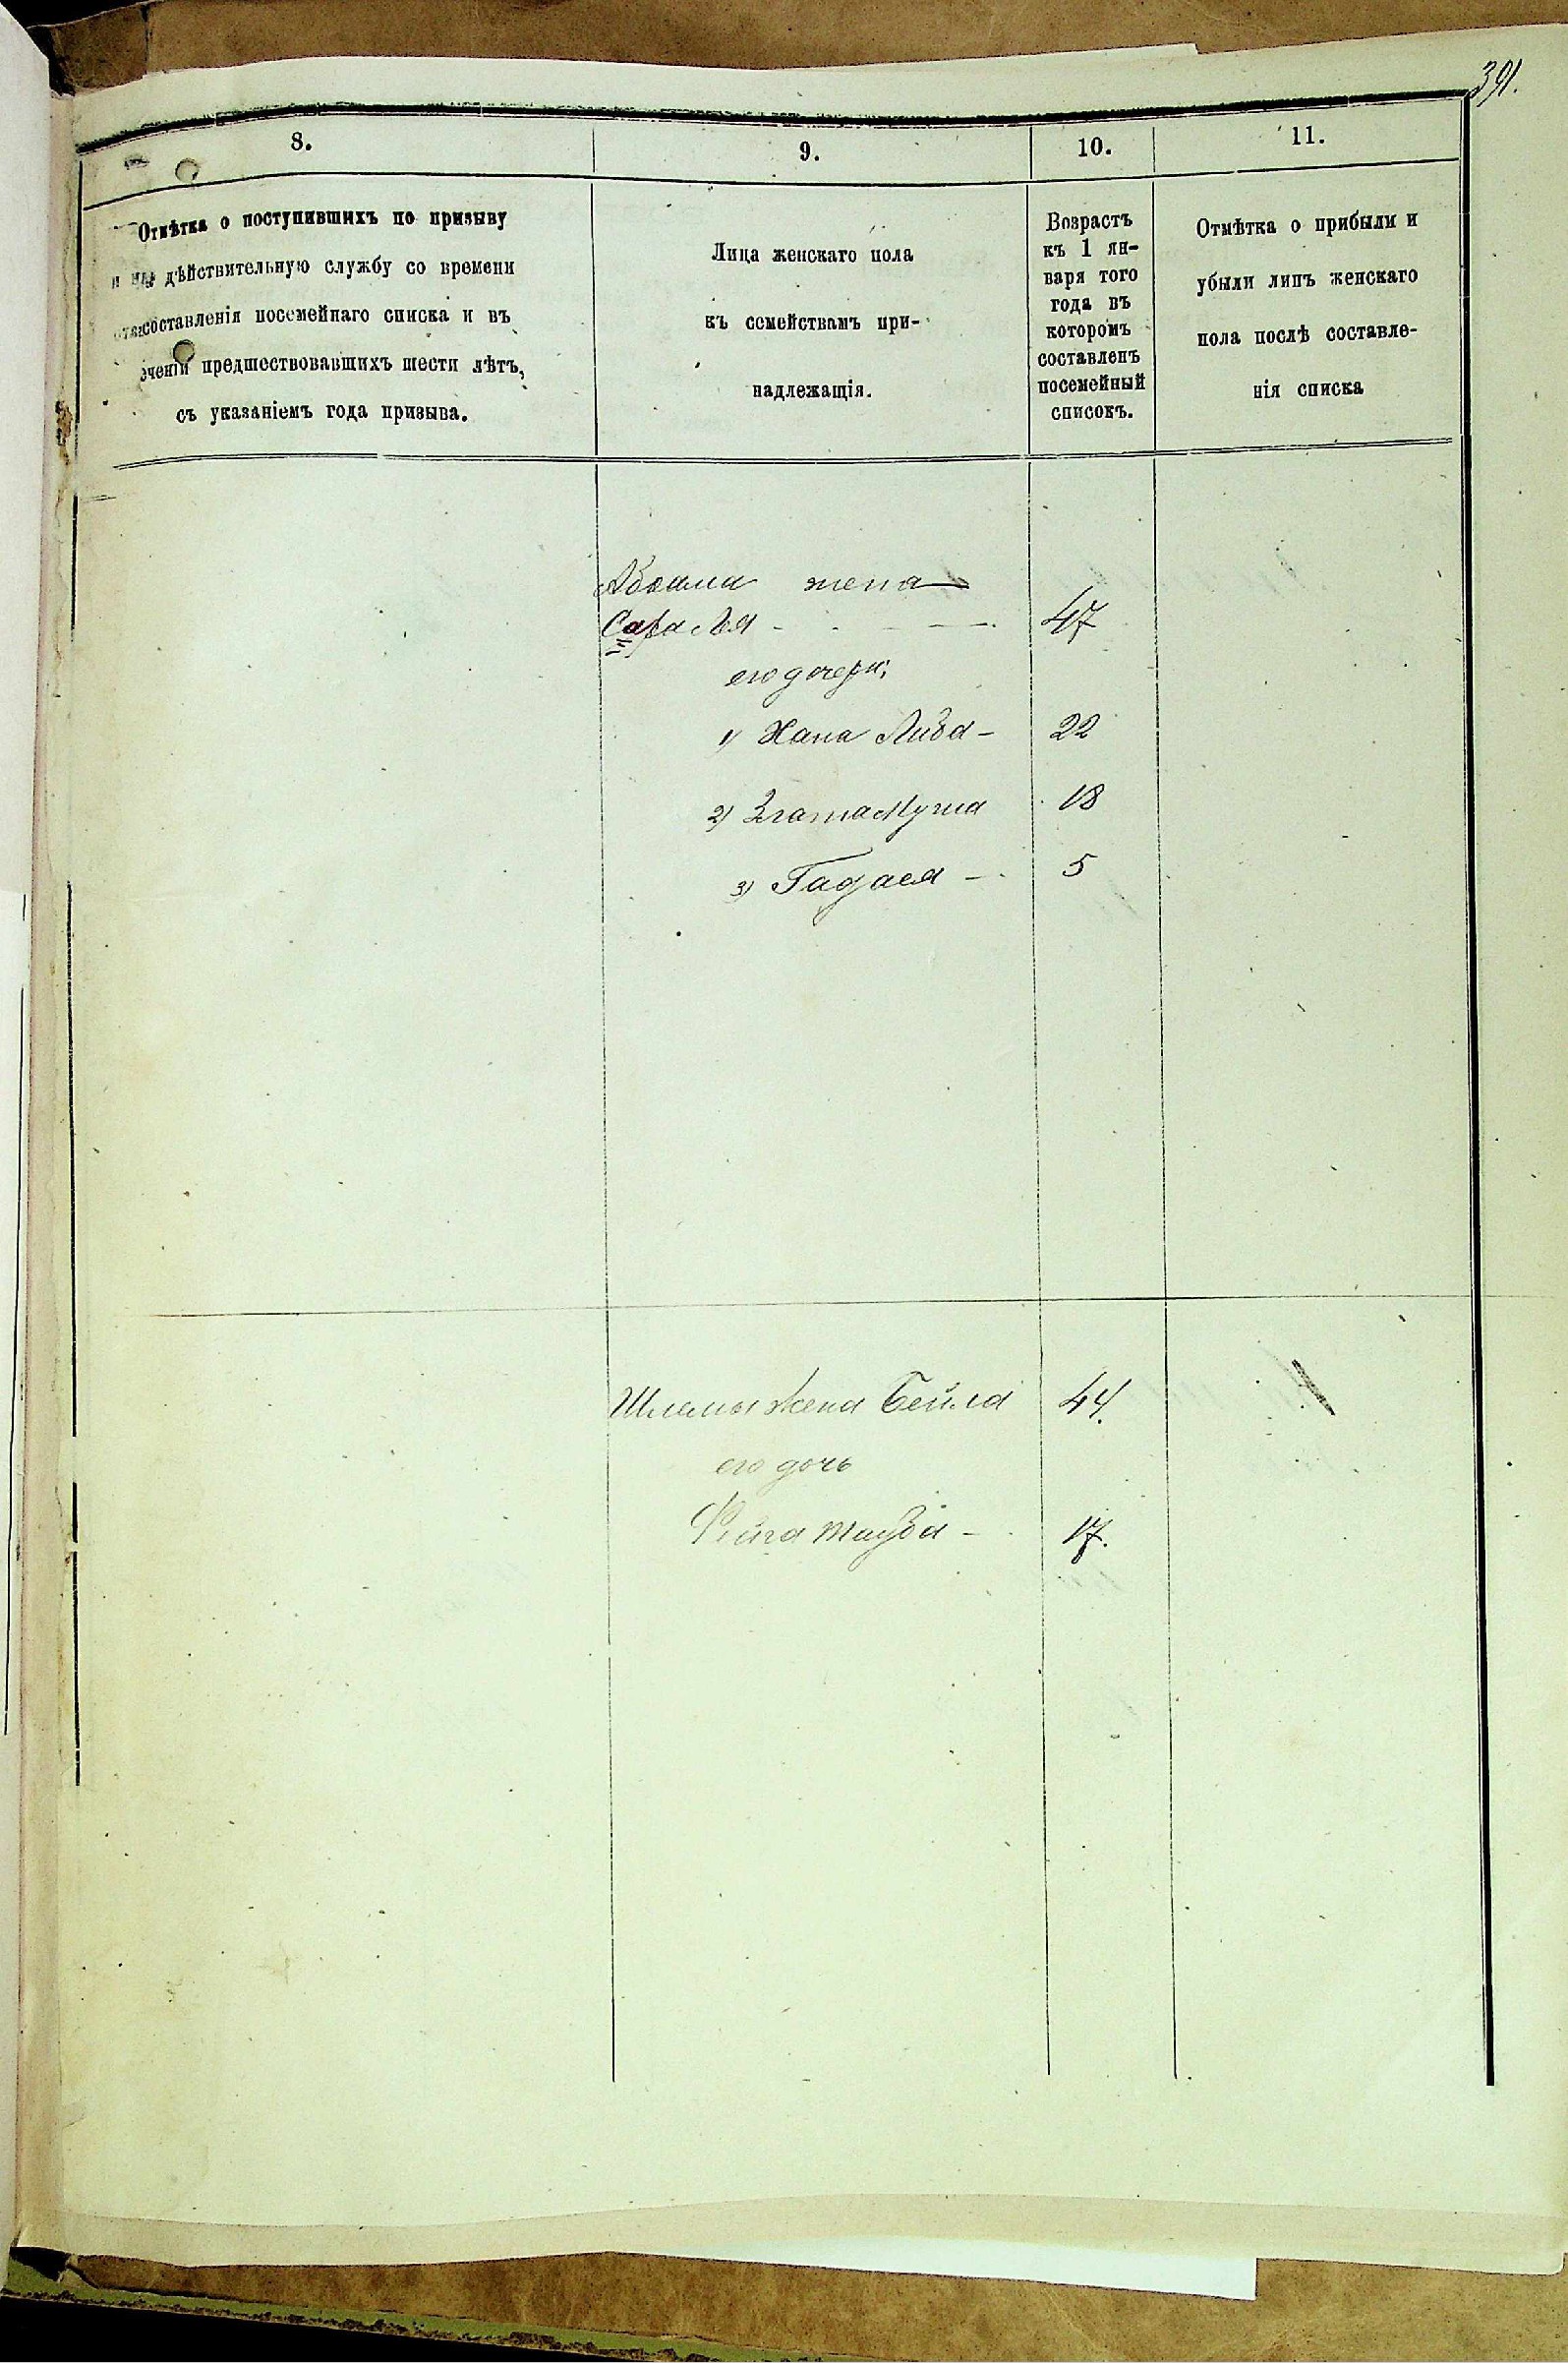 391.
8.
9.
10.
11.
Отмѣтка о поступившихъ по призыву
и на дѣйствительную службу со времени
составленія посемейнаго списка и въ
теченіи предшествовавшихъ шести лѣтъ,
съ указаніемъ года призыва.
Лица женскаго пола
къ семействамъ при-
надлежащія.
Возрастъ
къ 1 ян-
варя того
года въ
которомъ
составленъ
посемейный
списокъ.
Отмѣтка о прибыли и
убыли лицъ женскаго
пола послѣ составле-
нія списка
жена
Сара Лея - - - 47
его дочери:
1) Хана Либа - 22
2) Злата 18
3) Гадася - 5
жена Бейла 44.
его дочь
Фейга Тауба - 17.